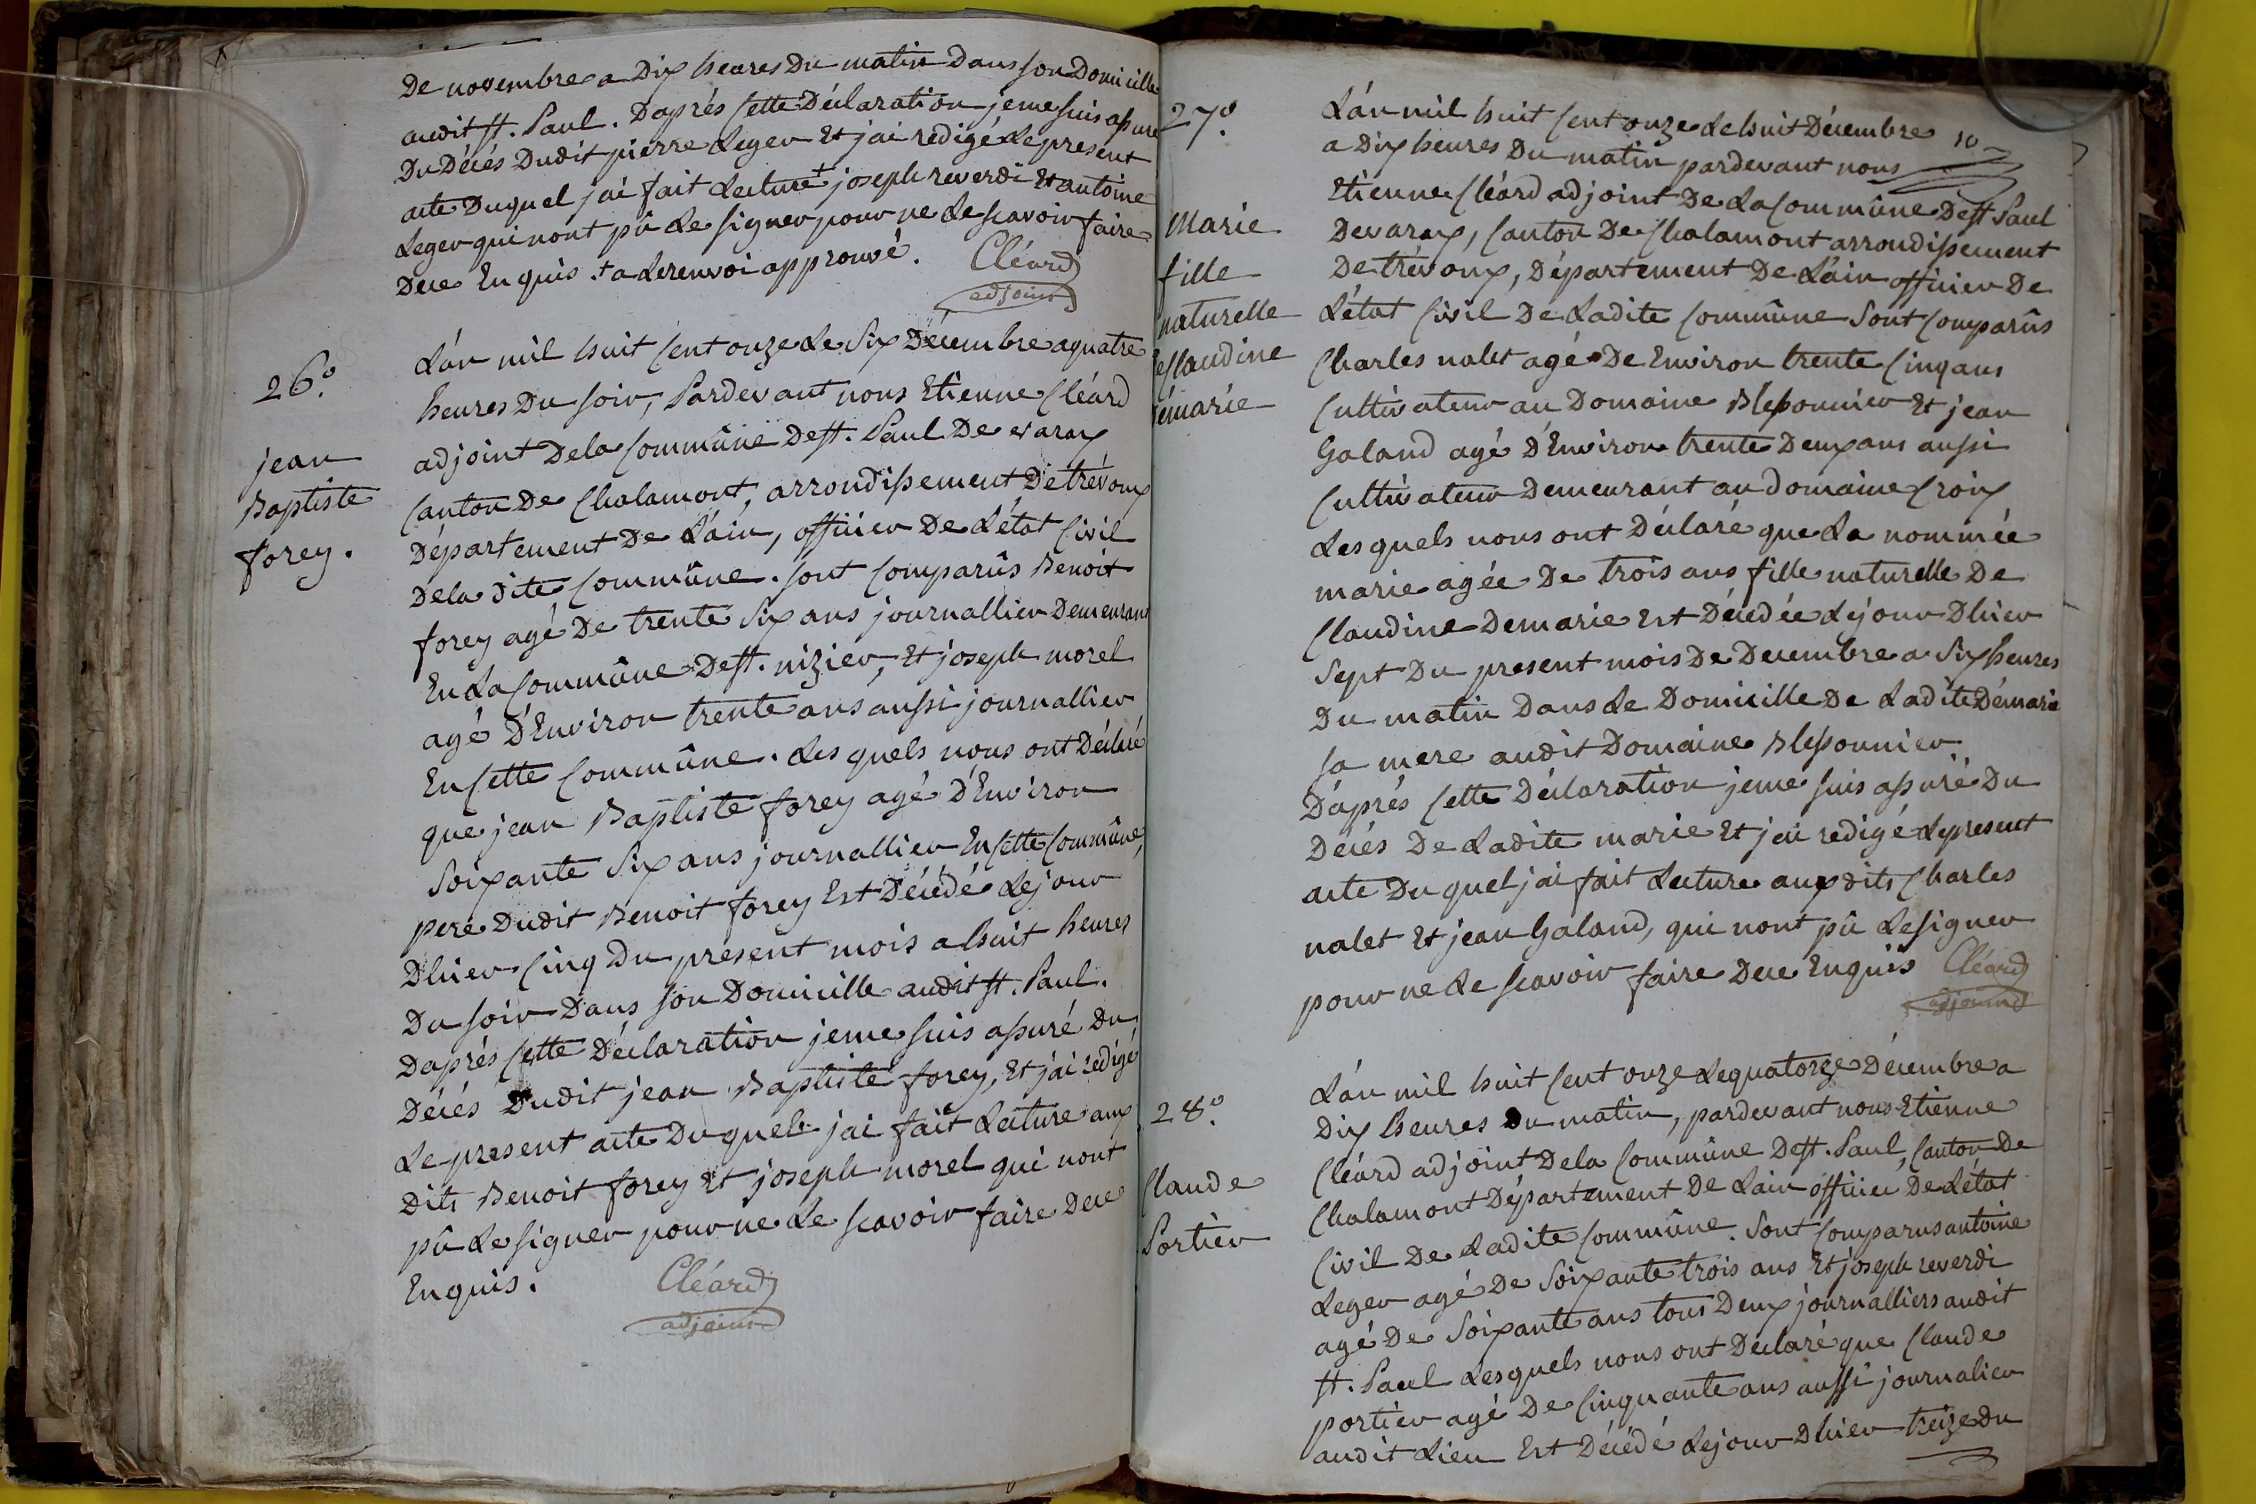 De novembre a Dix heures Du matin Dans son Domicille
audit st. Paul. Daprés Cette Déclaration jeme suis assuré
Du Décés Dudit pierre Leger Et jai redigé Le present
acte Duquel jai fait Lecture + joseph reverdi Et antoine
Leger qui nont pû Le signer pour ne Le scavoir faire
Dece Enquis. + a Le renvoi approuvé. Cléard
adjoint
26.º
jean
Baptiste
forey.
Lán mil huit Cent onze Le Six Décembre a quatre
heures Du soir, Pardevant nous Etienne Cléard
adjoint Dela Commûne Dest. Paul De varax
Canton De Chalamont, arrondissement De trévoux
Département De L'ain, officier De L'état Civil
Dela dite Commûne. sont Comparûs Benoit
forey agé De trente Six ans journallier Demeurant
En La Commûne Dest. nizier, Et joseph morel
agé D'Environ trente ans aussi journallier
En Cette Commûne. Les quels nous ont Déclaré
que jean Baptiste forey agé D'Environ
Soixante Six ans journallier En Cette Commûne,
pere Dudit Benoit forey Est Décédé Le jour
Dhier Cinq Du present mois a huit heures
Du soir Dans son Domicille audit st. Paul.
Daprés Cette Déclaration jeme suis assuré Du
Décés Dudit jean Baptiste forey, Et jai redigé
Le present acte Du quel jai fait Lecture aux
dits Benoit forey Et joseph morel qui nont
pû Le signer pour ne Le scavoir faire Dece
Enquis. Cléard
adjoint
27.º
Marie
fille
naturelle
Claudine
Démarie
10
Lán mil huit Cent onze Le huit Décembre
a Dix heures Du matin pardevant nous
Etienne Cléard adjoint De La Commûne Dest Paul
Devarax, Canton De Chalamont arrondissement
De trévoux, Département De L'ain officier De
L'état Civil De Ladite Commûne Sont Comparûs
Charles nalet agé De Environ trente Cinq ans
Cultivateur au Domaine Blessonnier Et jean
Galand agé D'Environ trente Deux ans aussi
Cultivateur Demeurant au Domaine Croix
Les quels nous ont Déclaré que La nommée
marie agée De trois ans fille naturelle De
Claudine Demarie Est Décédée Le jour Dhier
Sept Du present mois De Decembre a Six heures
Du matin Dans Le Domicille De Ladite Démarie
sa mere audit Domaine Blessonnier
D'aprés Cette Déclaration jeme suis assuré Du
Décés De Ladite marie Et jai redigé Le present
acte Du quel jai fait Lecture aux dits Charles
nalet Et jean Galand, qui nont pû Le signer
pour ne Le scavoir faire Dece Enquis Cléard
adjoint
28.º
Claude
Portier
Lán mil huit Cent onze Le quatorze Décembre a
Dix heures Du matin, pardevant nous Etienne
Cléard adjoint Dela Commûne Dest. Paul, Canton De
Chalamont Département De Lain officier De L'état
Civil De Ladite Commûne. Sont Comparus antoine
Leger agé De Soixante trois ans Et joseph reverdi
agé De Soixante ans tous Deux journalliers audit
st. Paul Lesquels nous ont Declaré que Claude
portier agé De Cinquante ans aussi journalier
audit Lieu Est Décédé Le jour Dhier treize du